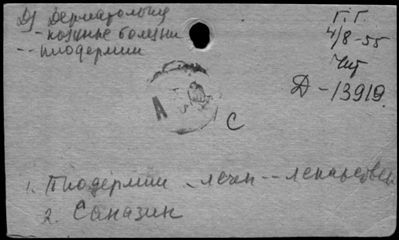 Д) Дерматология
- кожные болезни
-- пиодермии
Г.Г.
4/8-55
Чит
Д-13919.
А
С
1. Пиодермии - лечен -- лекарствен
2. Саназин